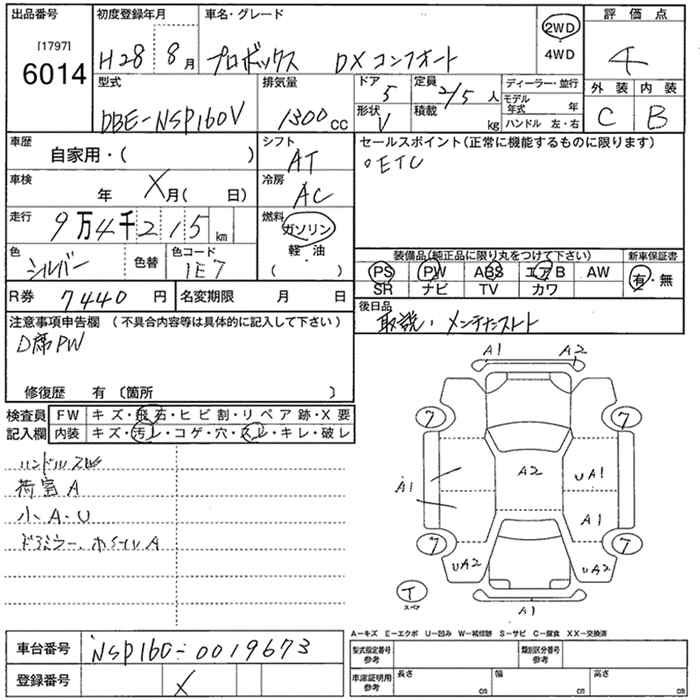 出品番号 初度登録年月 車名・グレード 評価点
[1797] 6014 H28 8月 プロボックス DXコンフォート 2WD 4WD 4
型式 排気量 ドア 定員 ディーラー・並行 外装 内装
DBE-NSP160V 1300cc 5 2/5人 モデル年式 年 C B
形状 V 積載 kg ハンドル 左・右
車歴 自家用・( ) シフト AT セールスポイント(正常に機能するものに限ります)
。ETC
車検 年 X月( 日) 冷房 AC
走行 9万4千215km 燃料 ガソリン 軽・油 ( )
色 シルバー 色替 色コード 1E7
装備品(純正品に限り丸をつけて下さい) 新車保証書
PS PW ABS エアB AW 有・無
SR ナビ TV カワ
R券 7440円 名変期限 月 日
後日品
取説、メンテナンスノート
注意事項申告欄(不具合内容等は具体的に記入して下さい)
D席PW
修復歴 有〔箇所 〕
検査員記入欄 FW キズ・飛石・ヒビ割・リペア跡・X要
内装 キズ・汚レ・コゲ・穴・スレ・キレ・破レ
ハンドルスレ
荷室A
小A・U
A1 A2
7 7
A1 A2 UA1
A1
7 7
UA2 UA2
T スペア A1
A-キズ E-エクボ U-凹み W-補修跡 S-サビ C-腐食 XX-交換済
車台番号 NSP160-0019673
型式指定番号 参考 類別区分番号 参考
登録番号 X
車庫証明用 参考 長さ cm 幅 cm 高さ cm